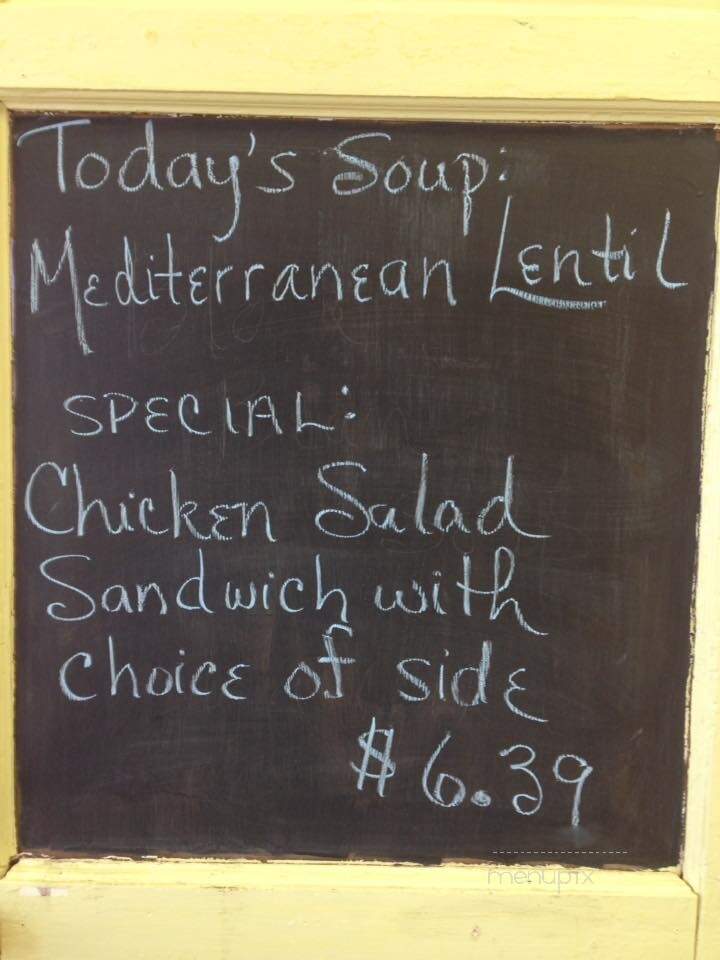 Today's Soup:
Mediterranean Lentil
SPECIAL:
Chicken Salad
Sandwich with
choice of side
$6.39
menupix